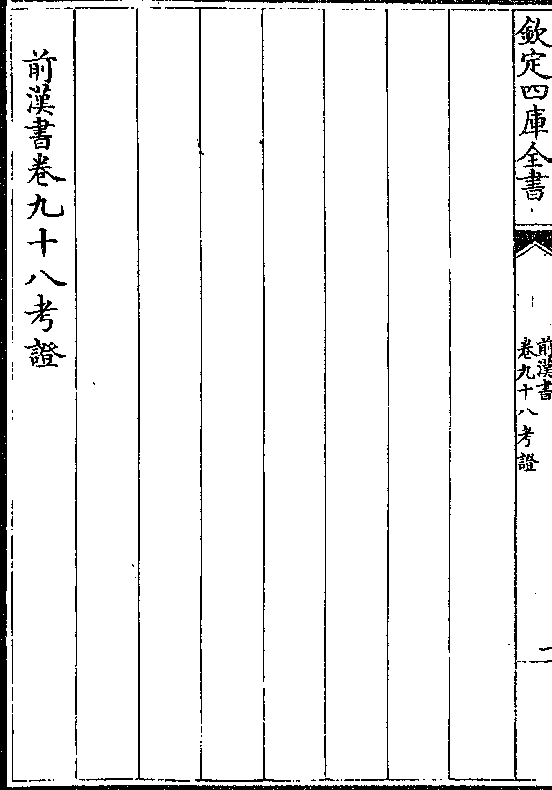 欽定四庫全書
前漢書
卷九十八考證
前漢書卷九十八考證